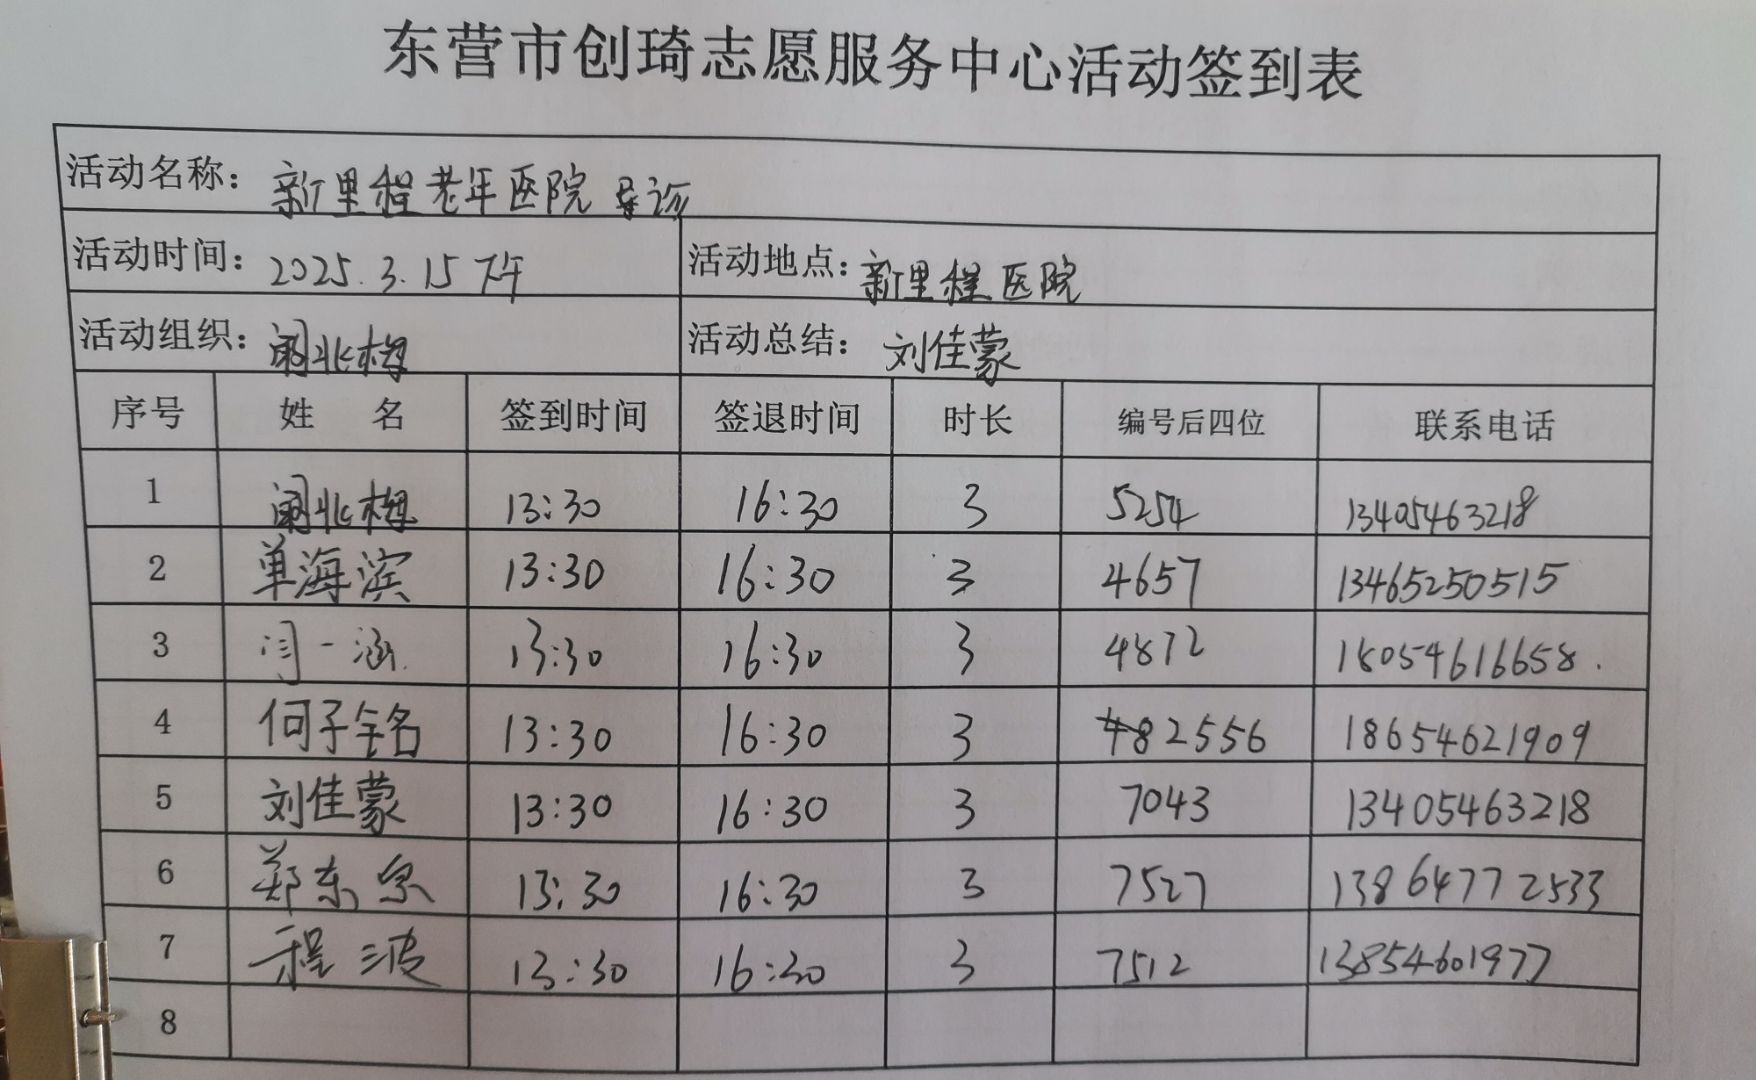 东营市创琦志愿服务中心活动签到表
活动名称：新里程老年医院导诊
活动时间：2025.3.15下午 活动地点：新里程医院
活动组织： 活动总结：刘佳蒙
序号 姓 名 签到时间 签退时间 时长 编号后四位 联系电话
1 13:30 16:30 3 5254 13405463218
2 单海滨 13:30 16:30 3 4657 13465250515
3 闫一涵 13:30 16:30 3 4872 18054616658.
4 何子铭 13:30 16:30 3 2556 18654621909
5 刘佳蒙 13:30 16:30 3 7043 13405463218
6 郑东 13:30 16:30 3 7527 13864772533
7 程波 13:30 16:30 3 7512 13854601977
8